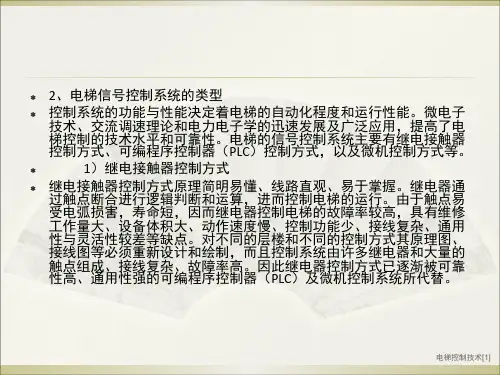 * 2、电梯信号控制系统的类型
* 控制系统的功能与性能决定着电梯的自动化程度和运行性能。微电子
技术、交流调速理论和电力电子学的迅速发展及广泛应用，提高了电
梯控制的技术水平和可靠性。电梯的信号控制系统主要有继电接触器
控制方式、可编程序控制器（PLC）控制方式，以及微机控制方式等。
* 1）继电接触器控制方式
* 继电接触器控制方式原理简明易懂、线路直观、易于掌握。继电器通
过触点断合进行逻辑判断和运算，进而控制电梯的运行。由于触点易
受电弧损害，寿命短，因而继电器控制电梯的故障率较高，具有维修
工作量大、设备体积大、动作速度慢、控制功能少、接线复杂、通用
性与灵活性较差等缺点。对不同的层楼和不同的控制方式其原理图、
接线图等必须重新设计和绘制，而且控制系统由许多继电器和大量的
触点组成，接线复杂、故障率高。因此继电器控制方式已逐渐被可靠
性高、通用性强的可编程序控制器（PLC）及微机控制系统所代替。
电梯控制技术[1]